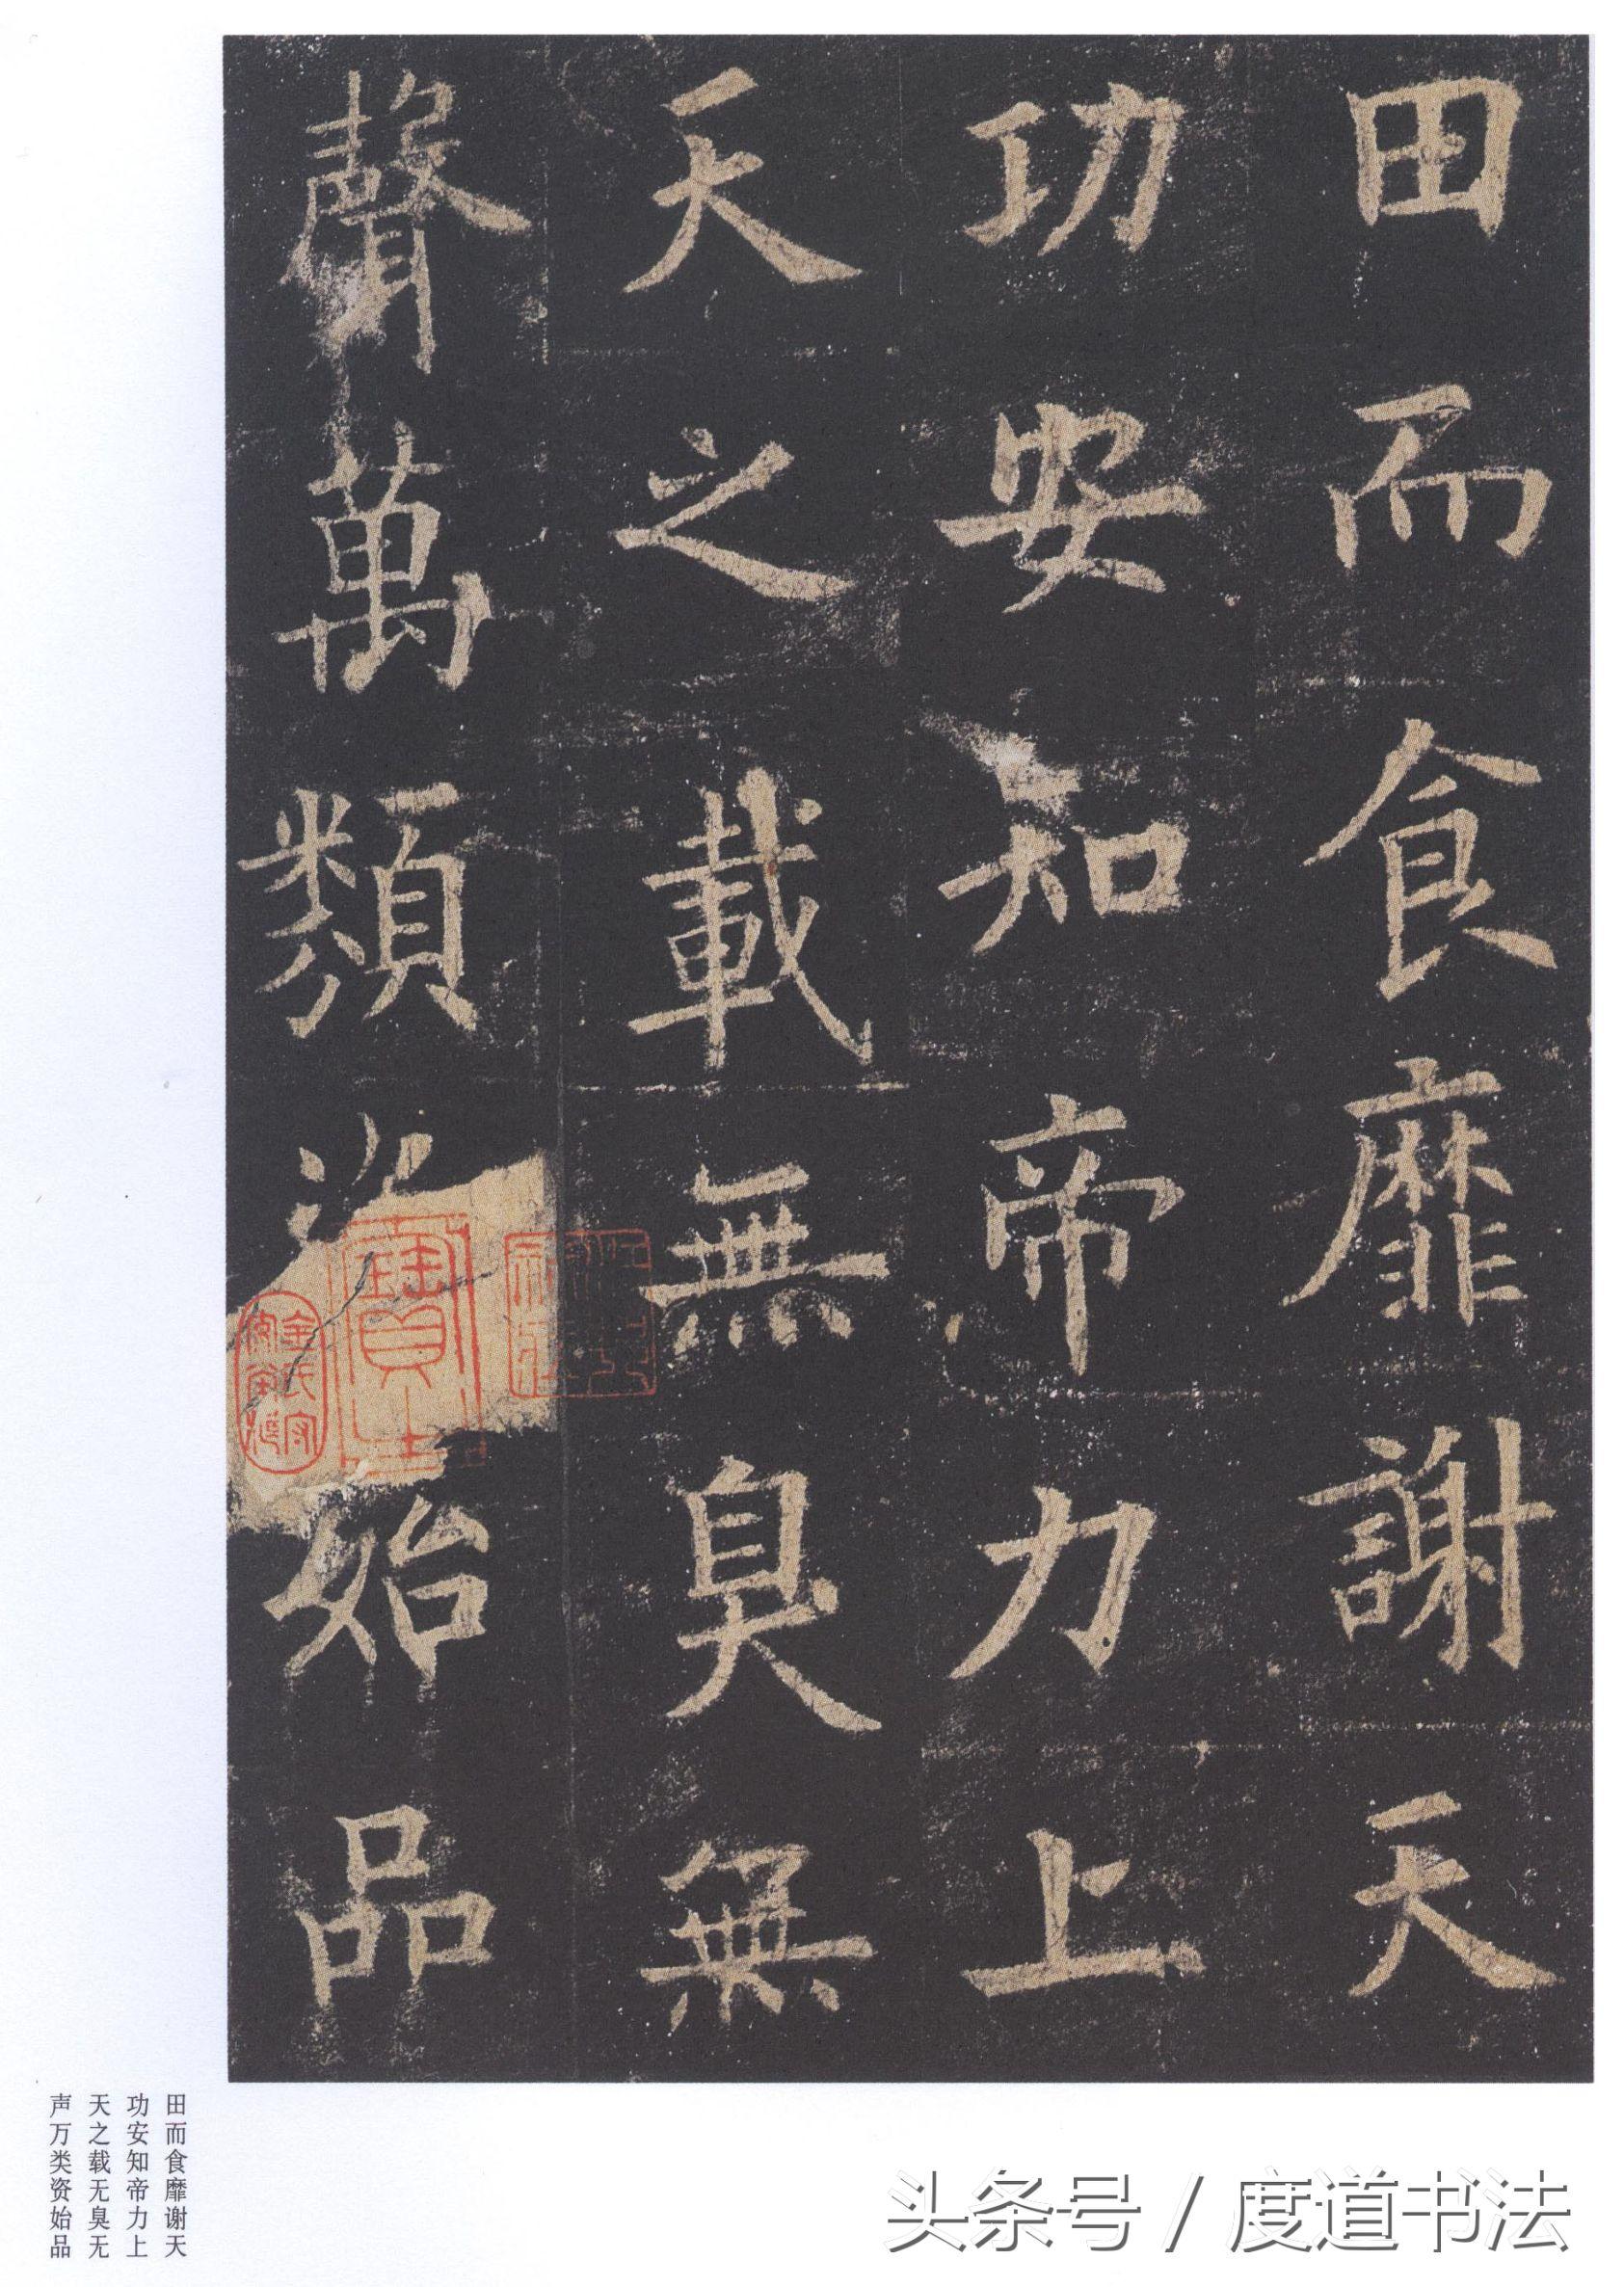 田而食靡謝天
功安知帝力上
天之載無臭無
聲萬類資始品
田而食靡谢天
功安知帝力上
天之载无臭无
声万类资始品
头条号 / 度道书法